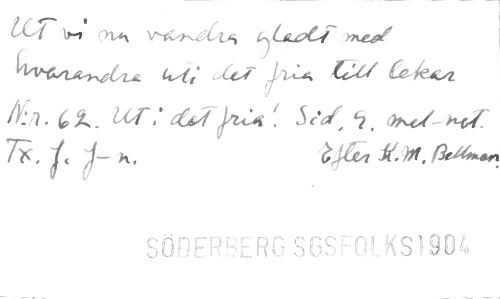 Ut vi nu vandra gladt med
hvarandra uti det fria till lekar
N:r. 62. Ut i det fria! Sid. 9. mel-not.
Tx. J. J-n. Efter K. M. Bellman.
SÖDERBERG SGSFOLKS1904